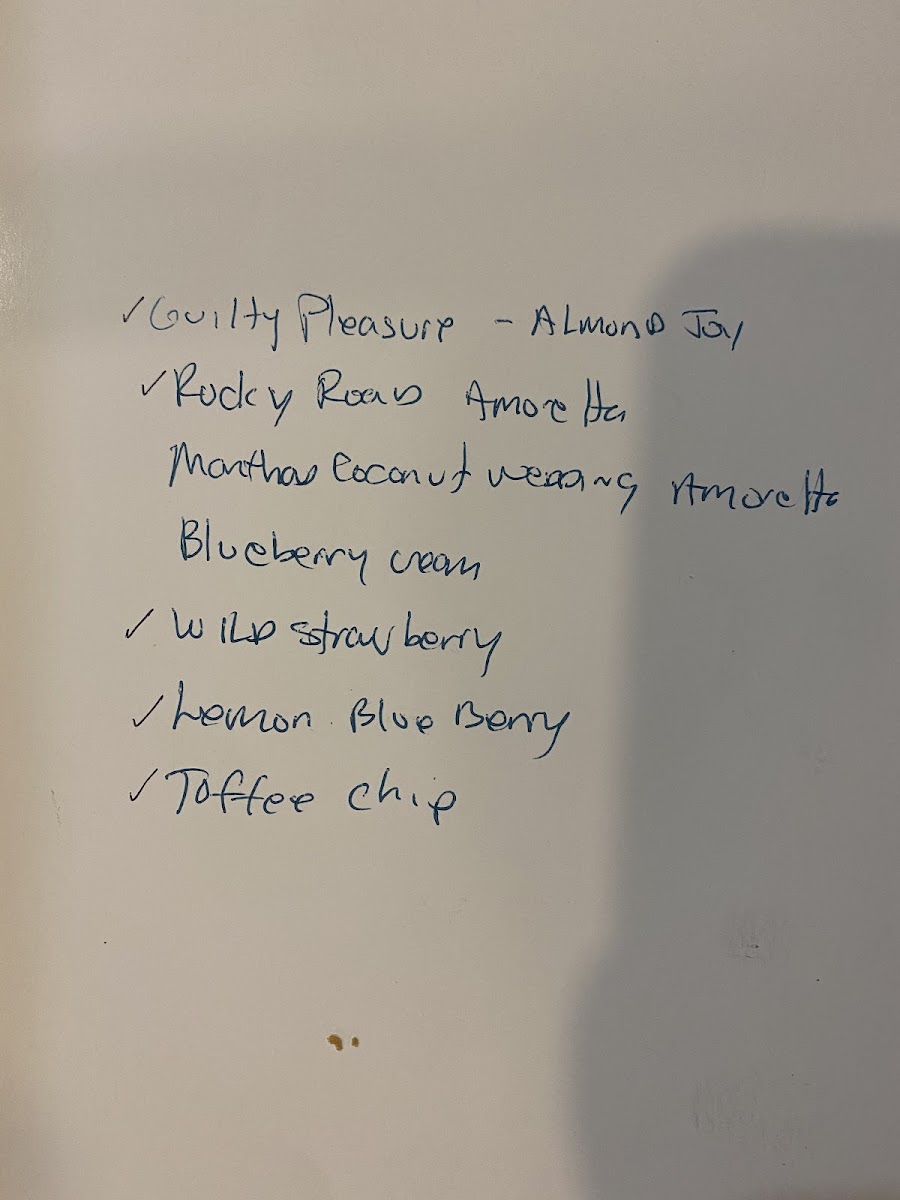 ✓ Guilty Pleasure - Almond Joy
✓ Rocky Road Amoretta
Marthas Coconut wedding Amoretta
Blueberry cream
✓ Wild strawberry
✓ Lemon Blue Berry
✓ Toffee chip